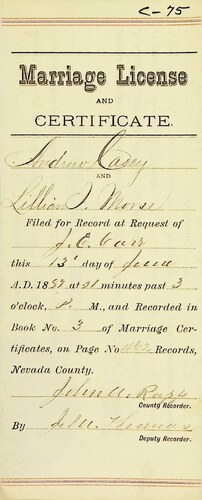 C-75
Marriage License
AND
CERTIFICATE.
Andrew Casey
AND
Lillian J. Morse
Filed for Record at Request of
J. E. Carr
this 13' day of June
A.D. 1897 at 31 minutes past 3
o'clock, P. M., and Recorded in
Book No. 3 of Marriage Cer-
tificates, on Page No 462 Records,
Nevada County.
John
County Recorder.
By Thomas
Deputy Recorder.